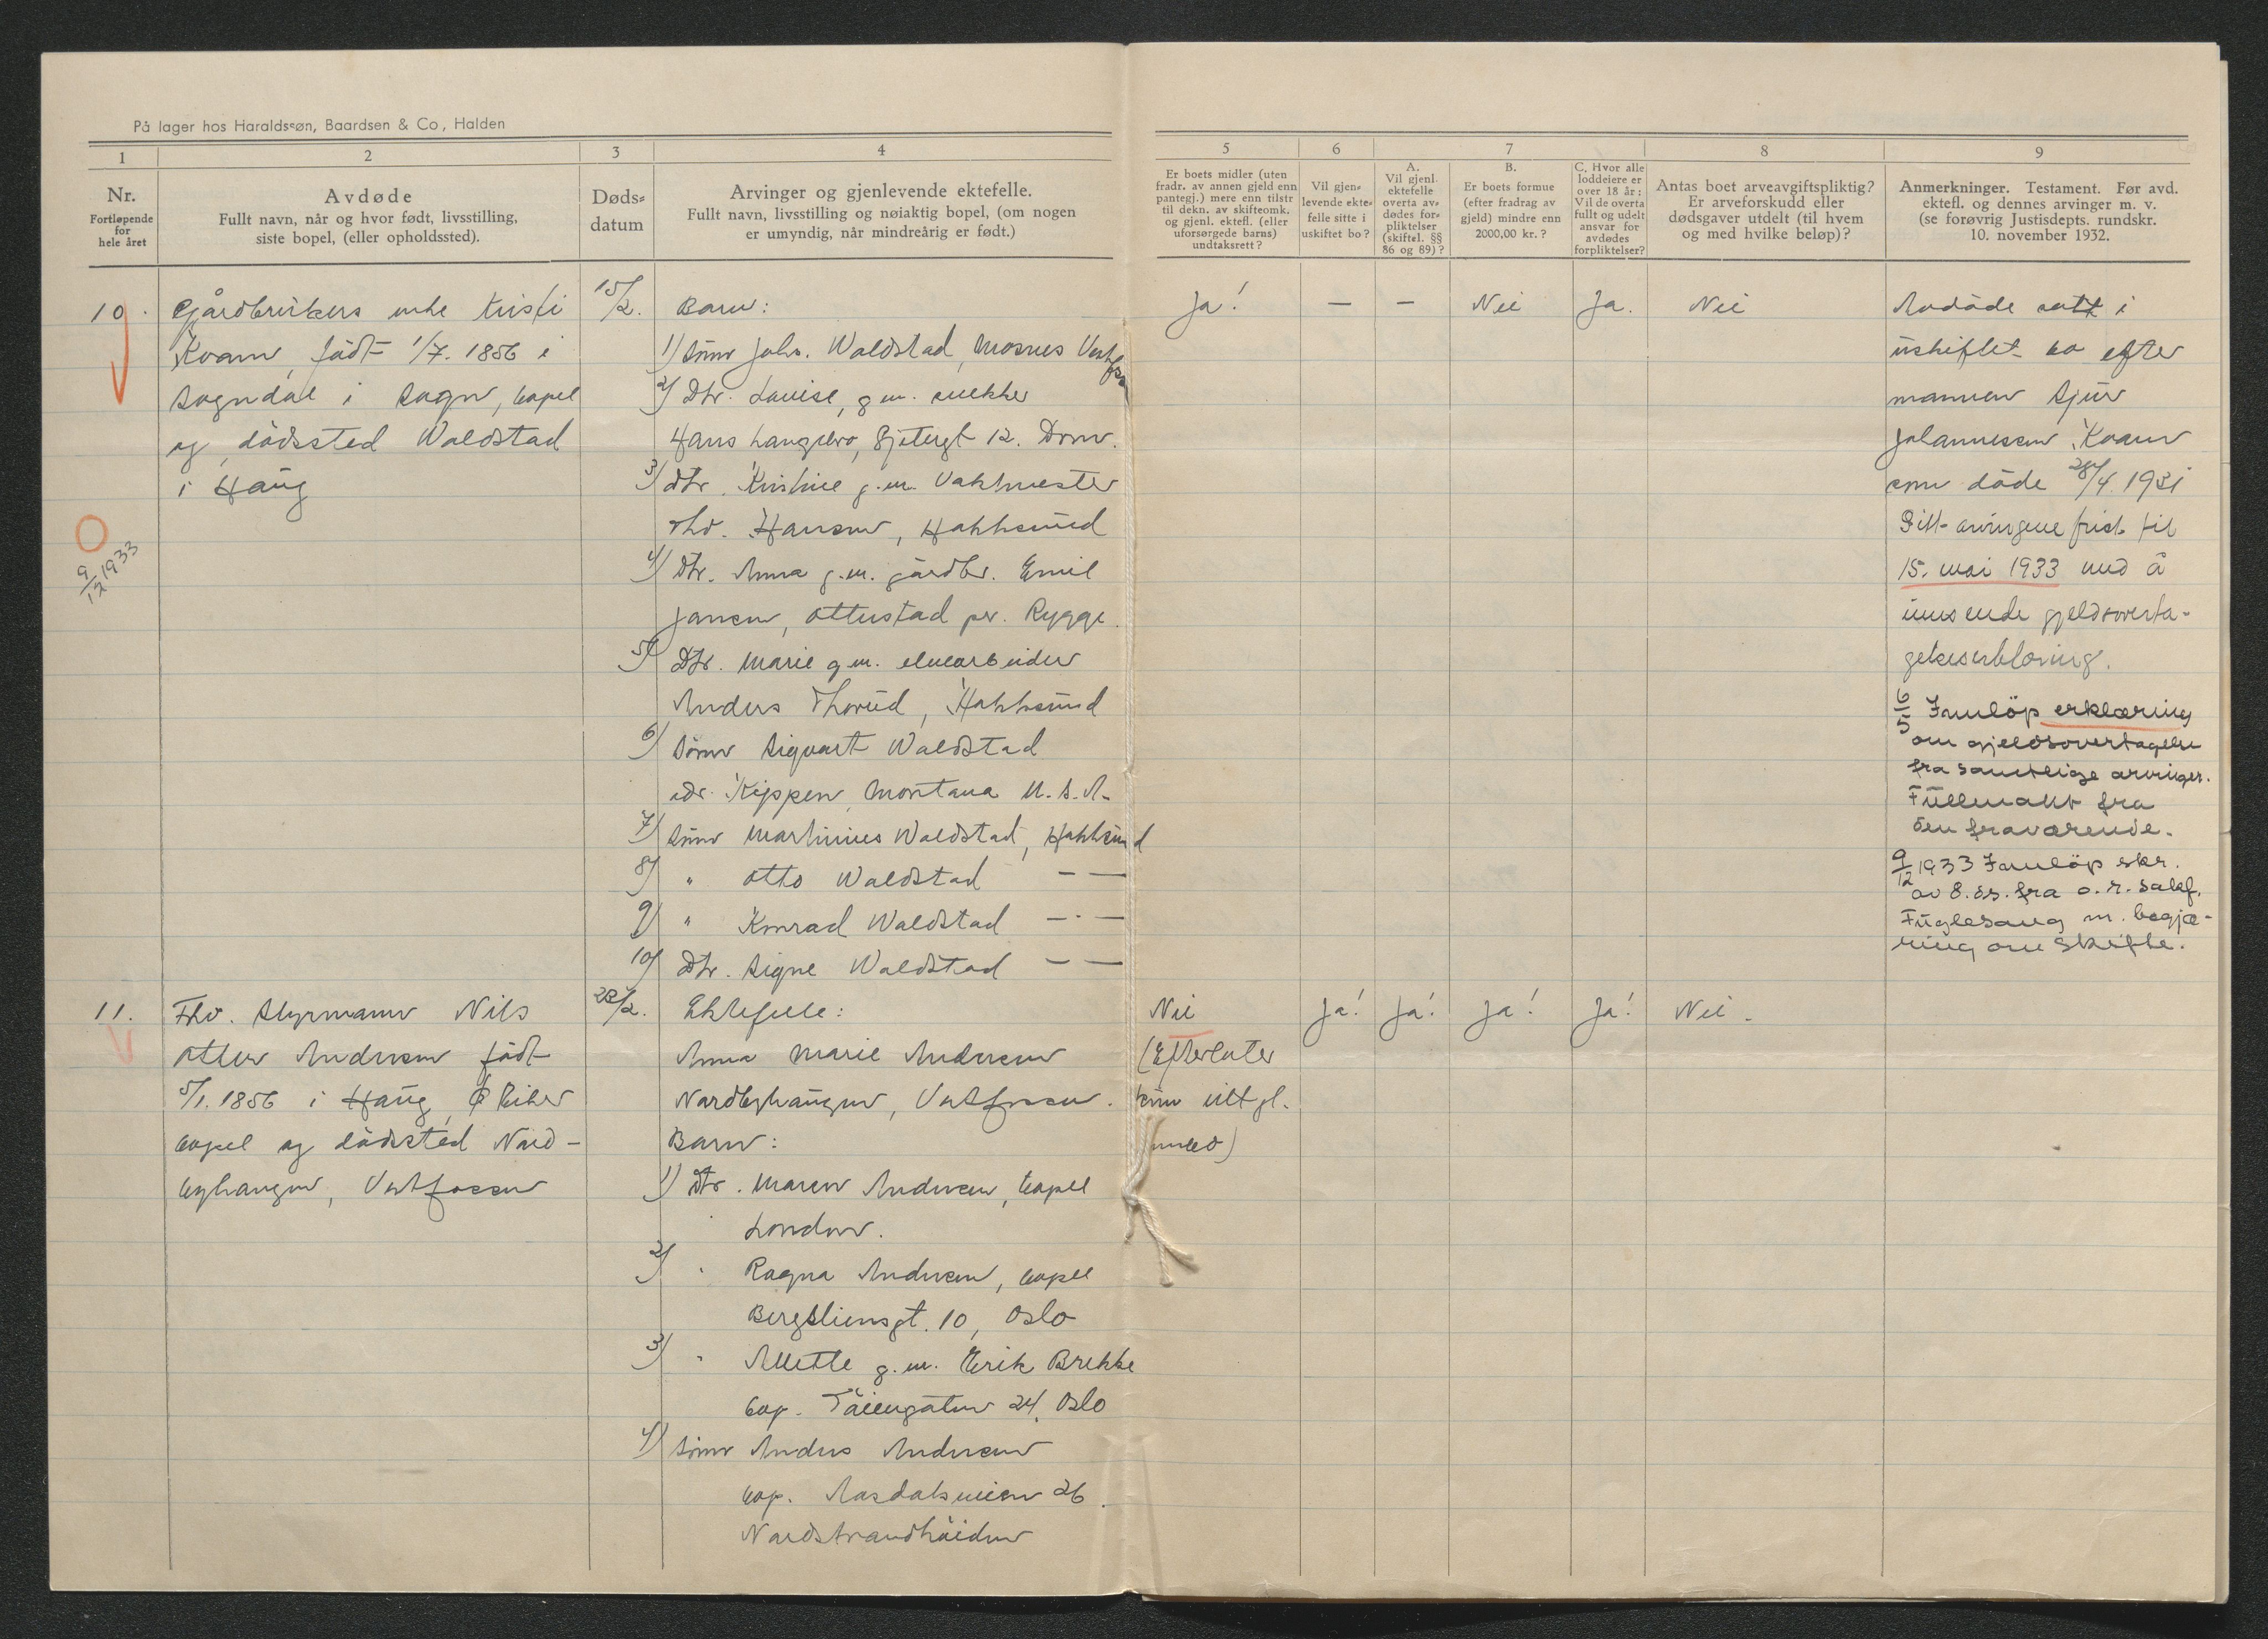 På lager hos Haraldssøn, Baardsen & Co, Halden
1
2
3
4
5
6
7
8
9
Nr.
Fortløpende
for
hele året
Avdøde
Fullt navn, når og hvor født, livsstilling,
siste bopel, (eller opholdssted).
Døds=
datum
Arvinger og gjenlevende ektefelle.
Fullt navn, livsstilling og nøiaktig bopel, (om nogen
er umyndig, når mindreårig er født.)
Er boets midler (uten
fradr. av annen gjeld enn
pantegj.) mere enn tilstr
til dekn. av skifteomk.
og gjenl. ektefl. (eller
uforsørgede barns)
undtaksrett?
Vil gjen=
levende ekte=
felle sitte i
uskiftet bo?
A.
Vil gjenl.
ektefelle
overta av=
dødes for=
pliktelser
(skiftel. §§
86 og 89)?
B.
Er boets formue
(efter fradrag av
gjeld) mindre enn
2000,00 kr.?
C. Hvor alle
loddeiere er
over 18 år:
Vil de overta
fullt og udelt
ansvar for
avdødes
forpliktelser?
Antas boet arveavgiftspliktig?
Er arveforskudd eller
dødsgaver utdelt (til hvem
og med hvilke beløp)?
Anmerkninger. Testament. Før avd.
ektefl. og dennes arvinger m. v.
(se forøvrig Justisdepts. rundskr.
10. november 1932.
10.
Gårdbrukers enke Kristi
Kvam, født 1/7. 1856 i
Sogndal i Sogn, bopel
og dødssted Waldstad
i Haug
9/12 1933
15/2.
Barn:
1) Sønn Johs. Waldstad, Mosnes
2) Dtr. Louise, g.m. snekker
Hans Langebro, gt 12. Drm.
3) Dtr. Kristine g.m. Vaktmester
Thv. Hansen, Hokksund
4) Dtr. Anna g.m. gårdbr. Emil
Jansen, Ottestad pr. Rygge.
5) Dtr. Marie g.m. elvearbeider
Anders Thorud, Hokksund
6) Sønn Sigvart Waldstad
adr. Kippen, Montana U.S.A.
7) Sønn Martinius Waldstad, Hokksund
8) " Otto Waldstad — —
9) " Konrad Waldstad — · —
10) Dtr. Signe Waldstad — —
Ja!
—
—
Nei
Ja.
Nei
Avdøde satt i
uskiftet bo efter
mannen Sjur
Johannesen Kvam
som døde 28/4. 1931
Gitt arvingene frist til
15. mai 1933 med å
innsende gjeldsoverta-
gelseserklæring.
6/5 Innløp erklæring
om gjeldsovertagelse
fra samtlige arvinger.
Fullmakt fra
den fraværende.
9/12 1933 Innløp skr.
av 8. ds. fra o.r. sakf.
Fuglesang m. begjæ-
ring om skifte.
11.
Fhv. Styrmann Nils
Otter Andersen født
5/1. 1856 i Haug, Ø. Eiker
bopel og dødssted Nord-
byhaugen, Vestfossen
22/2.
Ektefelle:
Anna Marie Andersen
Nordbyhaugen, Vestfossen.
Barn:
1) Dtr. Maren Andersen, bopel
London.
2) " Ragna Andersen, bopel
Bergsliensgt. 10, Oslo
3) " Alette g.m. Erik Brekke
bop. Tøiengaten 24, Oslo
4) Sønn Anders Andersen
bop. Aasdalsveien 26.
Nordstrandhøiden
Nei
(Efterlater
kun litt gl.
innbo)
Ja!
Ja!
Ja!
Ja!
Nei.